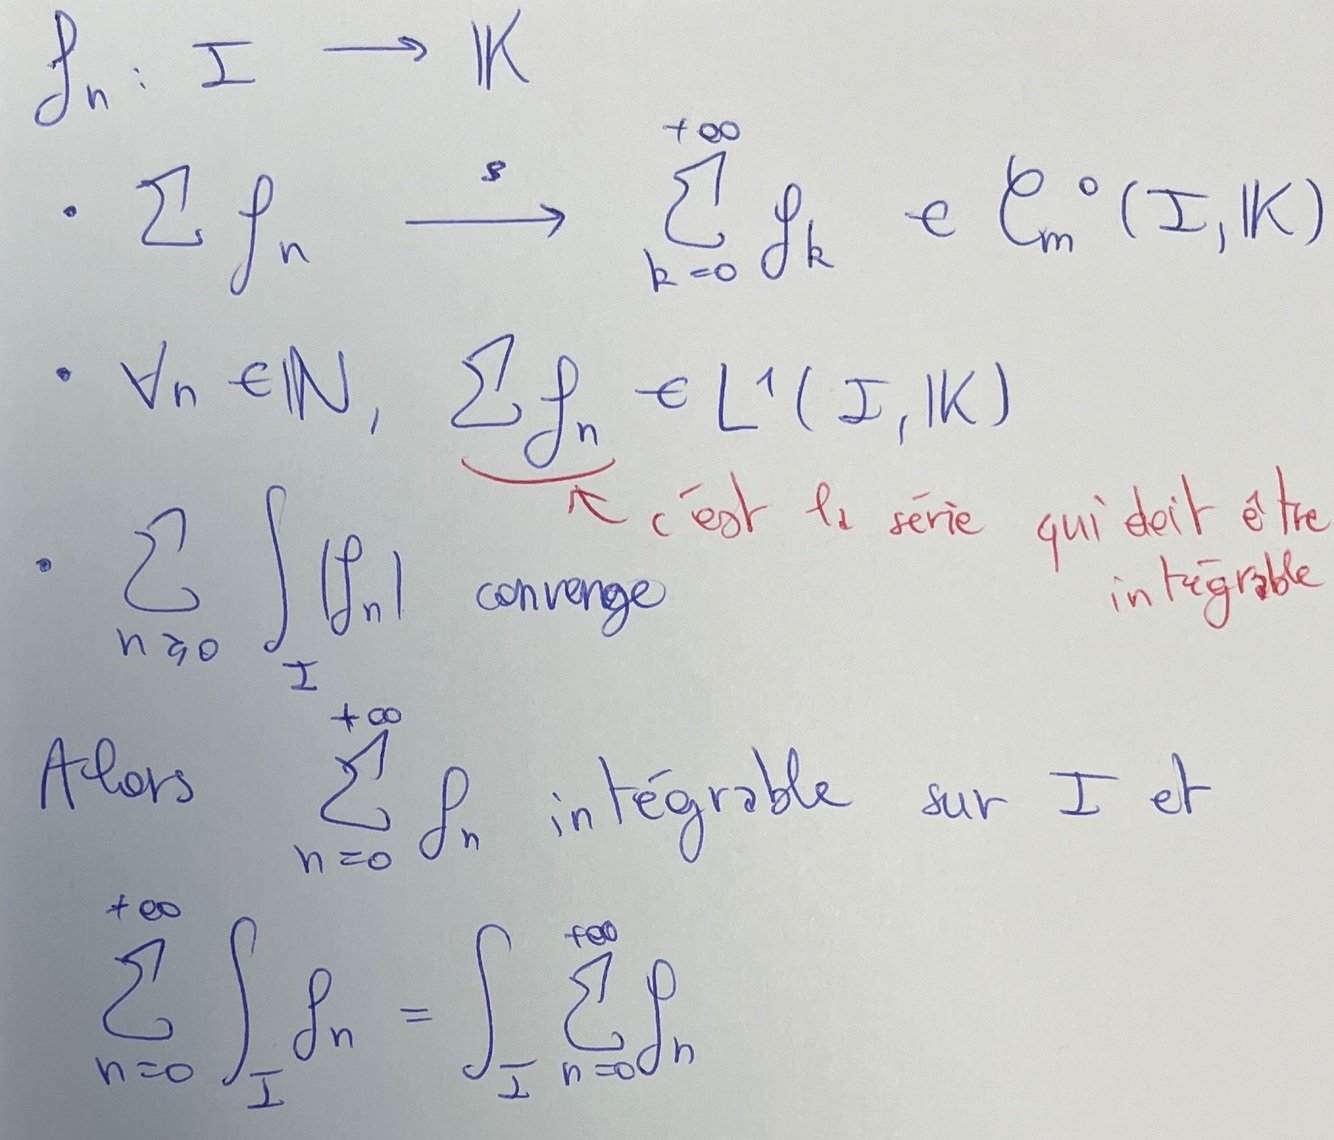 fₙ : I → 𝕂
• Σ fₙ →ˢ Σ_{k=0}^{+∞} fₖ ∈ 𝒞ₘ⁰(I, 𝕂)
• ∀n ∈ ℕ, Σ fₙ ∈ L¹(I, 𝕂)
↖ c'est la série qui doit être
intégrable
• Σ_{n⩾0} ∫_I |fₙ| converge
Alors Σ_{n=0}^{+∞} fₙ intégrable sur I et
Σ_{n=0}^{+∞} ∫_I fₙ = ∫_I Σ_{n=0}^{+∞} fₙ